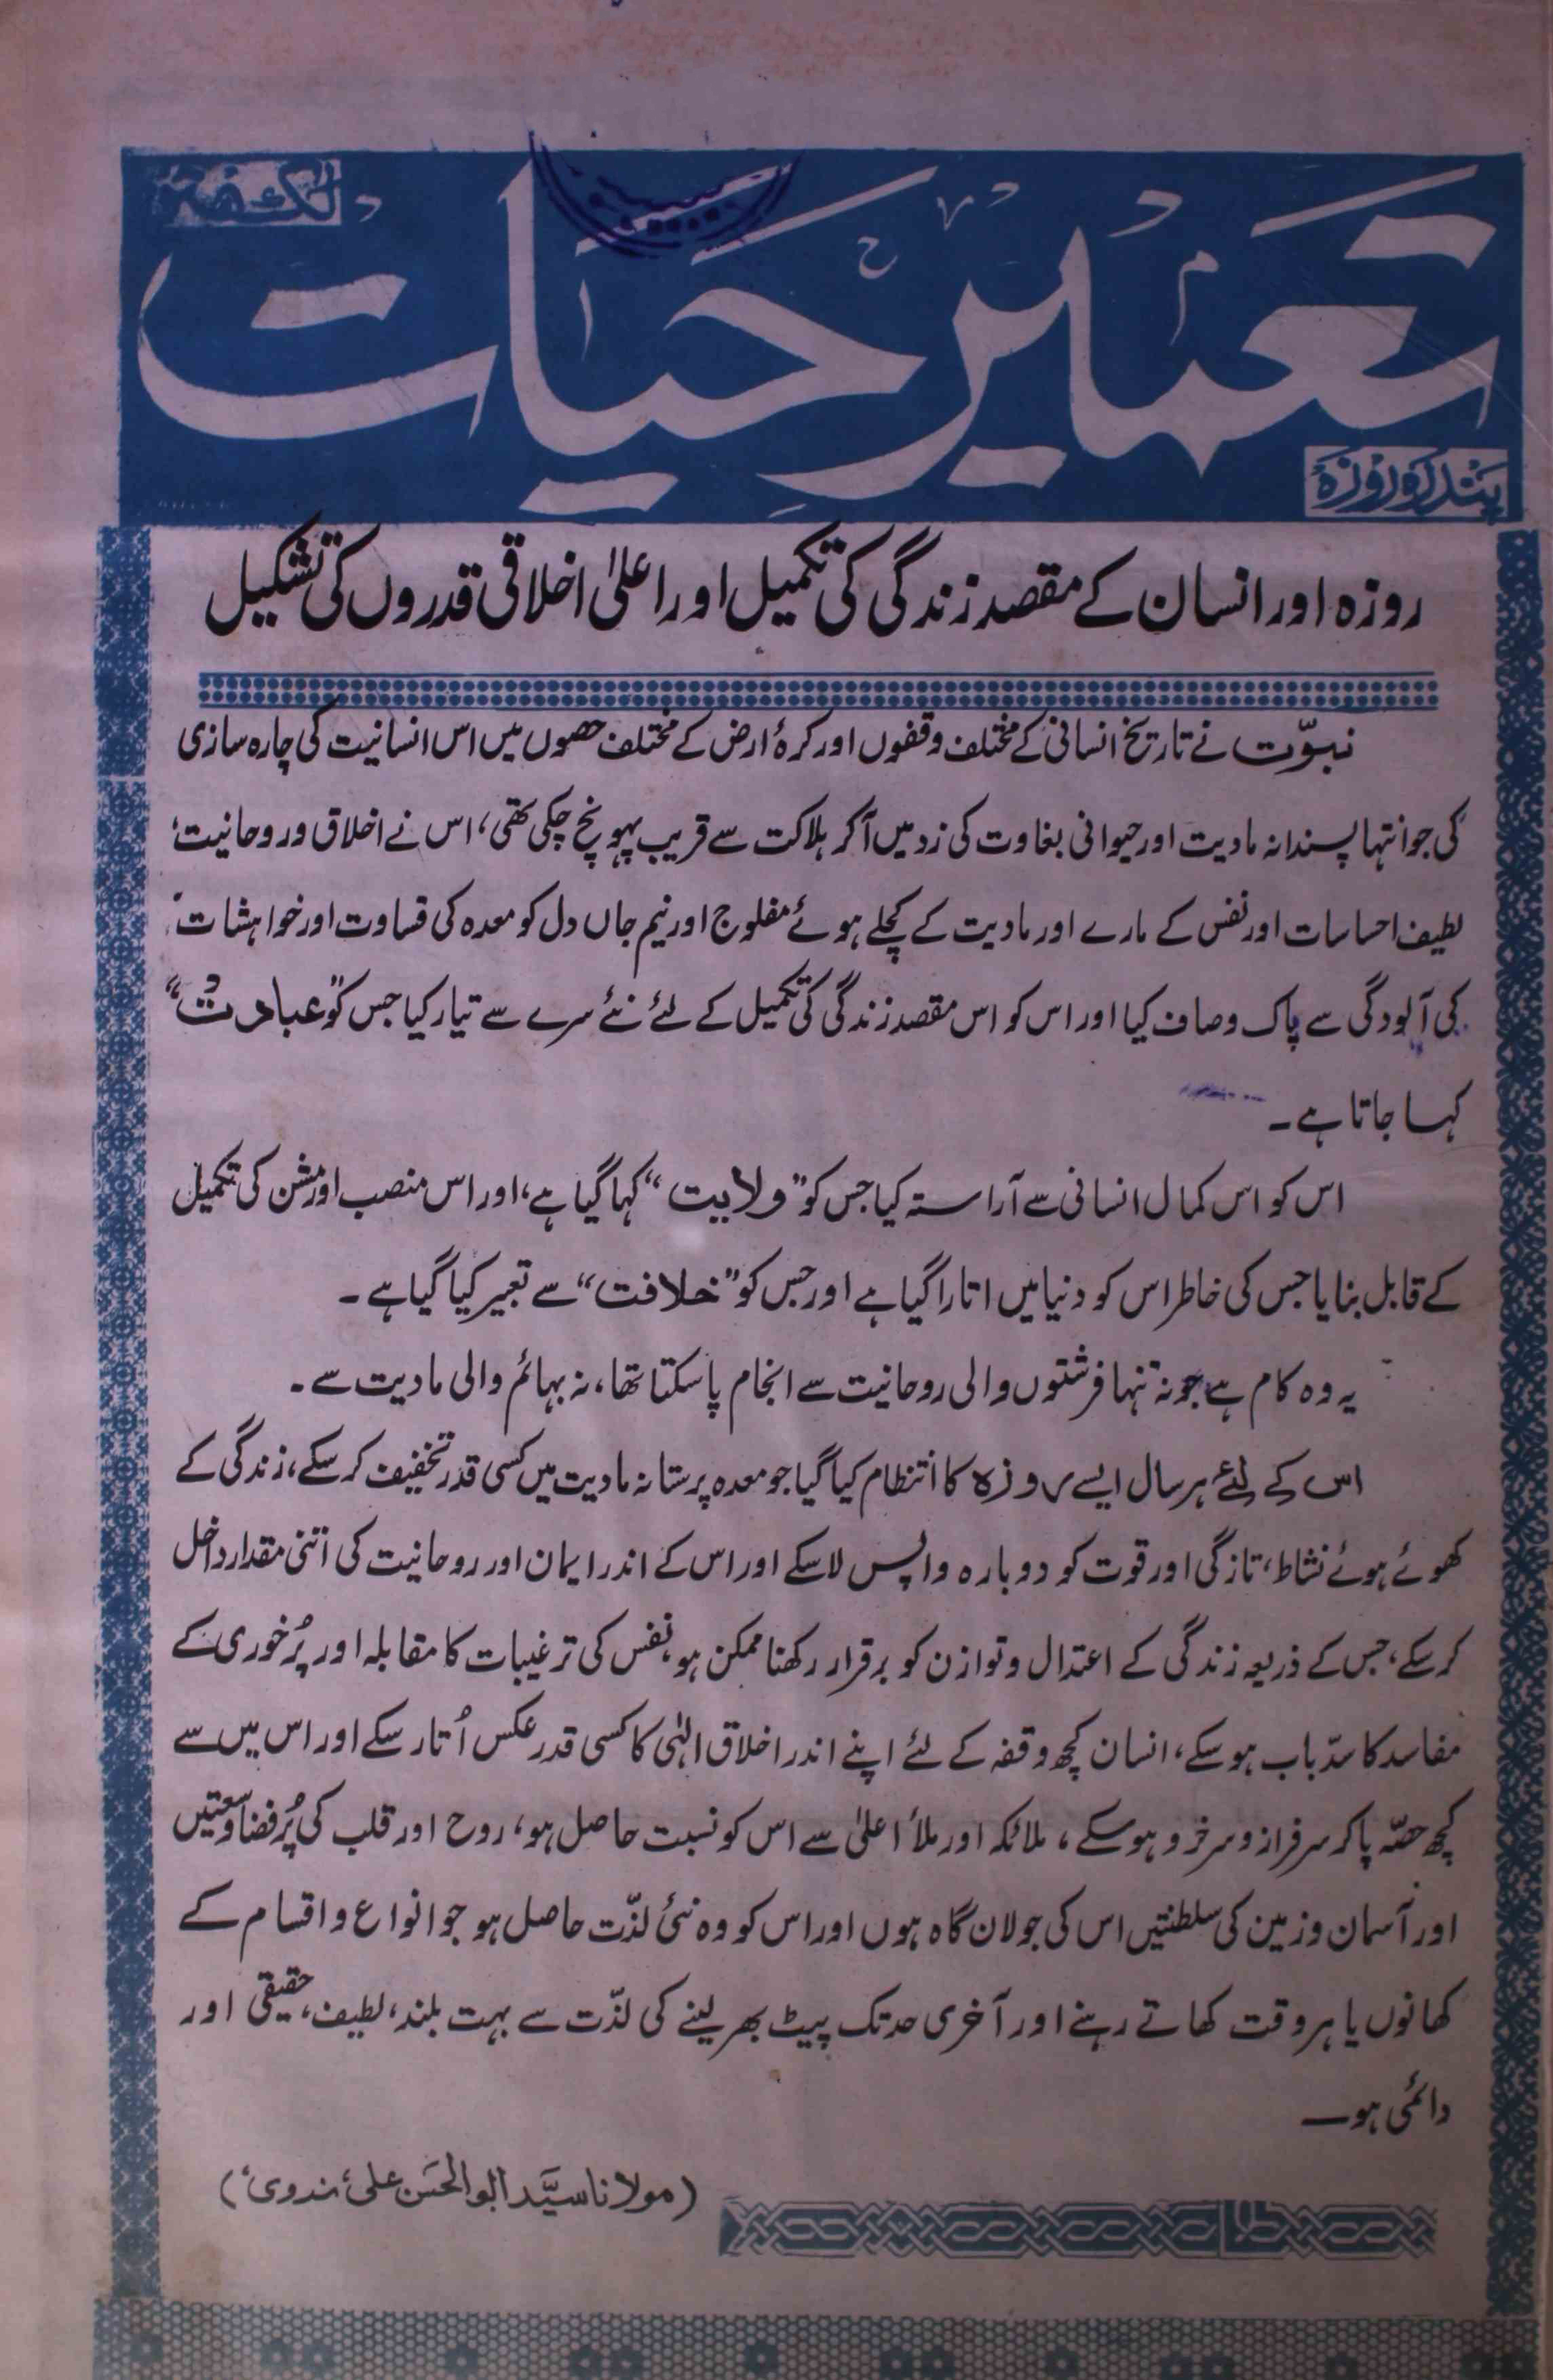 لکھنؤ
تعمیر حیات
پندرہ روزہ
روزہ اور انسان کے مقصد زندگی کی تکمیل اور اعلیٰ اخلاقی قدروں کی تشکیل
نبوّت نے تاریخ انسانی کے مختلف وقفوں اور کرۂ ارض کے مختلف حصوں میں اس انسانیت کی چارہ سازی
کی جو انتہا پسندانہ مادیت اور حیوانی بغاوت کی زد میں آکر ہلاکت سے قریب پہونچ چکی تھی، اس نے اخلاق و روحانیت،
لطیف احساسات اور نفس کے مارے اور مادیت کے کچلے ہوئے مفلوج اور نیم جاں دل کو معدہ کی قساوت اور خواہشات
کی آلودگی سے پاک و صاف کیا اور اس کو اس مقصد زندگی کی تکمیل کے لئے نئے سرے سے تیار کیا جس کو "عبادت"
کہا جاتا ہے۔
اس کو اس کمال انسانی سے آراستہ کیا جس کو "ولایت" کہا گیا ہے، اور اس منصب اور مشن کی تکمیل
کے قابل بنایا جس کی خاطر اس کو دنیا میں اتارا گیا ہے اور جس کو "خلافت" سے تعبیر کیا گیا ہے۔
یہ وہ کام ہے جو نہ تنہا فرشتوں والی روحانیت سے انجام پاسکتا تھا، نہ بہائم والی مادیت سے۔
اس کے لئے ہر سال ایسے روزہ کا انتظام کیا گیا جو معدہ پرستانہ مادیت میں کسی قدر تخفیف کر سکے، زندگی کے
کھوئے ہوئے نشاط، تازگی اور قوت کو دوبارہ واپس لاسکے اور اس کے اندر ایمان اور روحانیت کی اتنی مقدار داخل
کر سکے، جس کے ذریعہ زندگی کے اعتدال و توازن کو برقرار رکھنا ممکن ہو، نفس کی ترغیبات کا مقابلہ اور پُرخوری کے
مفاسد کا سدّباب ہو سکے، انسان کچھ وقفہ کے لئے اپنے اندر اخلاق الٰہی کا کسی قدر عکس اُتار سکے اور اس میں سے
کچھ حصّہ پا کر سرفراز و سرخرو ہو سکے، ملائکہ اور ملأ اعلیٰ سے اس کو نسبت حاصل ہو، روح اور قلب کی پُرفضا وسعتیں
اور آسمان و زمین کی سلطنتیں اس کی جولان گاہ ہوں اور اس کو وہ نئی لذّت حاصل ہو جو انواع و اقسام کے
کھانوں یا ہر وقت کھاتے رہنے اور آخری حد تک پیٹ بھر لینے کی لذّت سے بہت بلند، لطیف، حقیقی اور
دائمی ہو۔
(مولانا سیّد ابوالحسن علی ندوی)